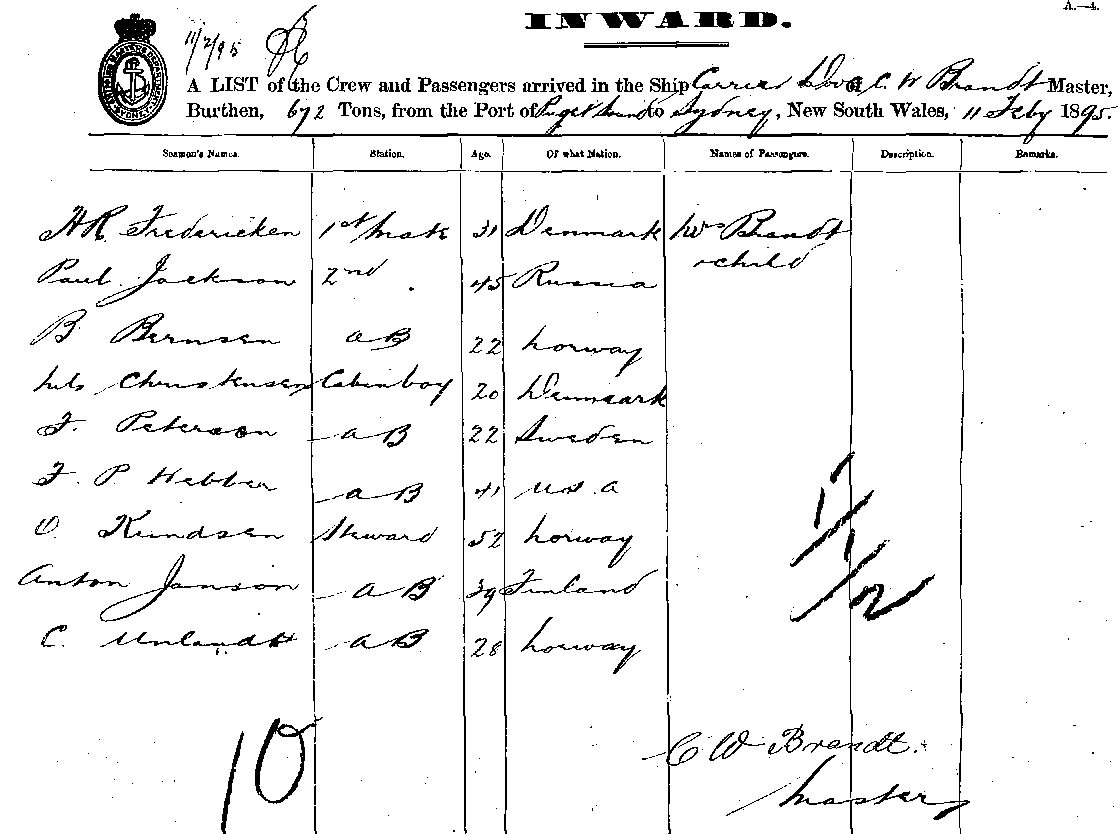 A.—4.
INWARD.
11/2/95
A LIST of the Crew and Passengers arrived in the Ship Carrier Dove C. W Brandt Master,
Burthen, 672 Tons, from the Port of Puget Sound to Sydney, New South Wales, 11 Feby 1895.
Seamen's Names. Station. Age. Of what Nation. Names of Passengers. Description. Remarks.
H R Fredericken 1st Mate 31 Denmark Mrs Brandt
child
Paul Jackson 2nd 45 Russia
B Bernsen a B 22 Norway
Nels Christensen Cabin boy 20 Denmark
F. Peterson a B 22 Sweden
F. P Webber a B 41 U S. a
O Kundsen Steward 52 Norway
Anton Janson a B 39 Finland
C. a B 28 Norway
1/1/2
10
C W Brandt.
Master